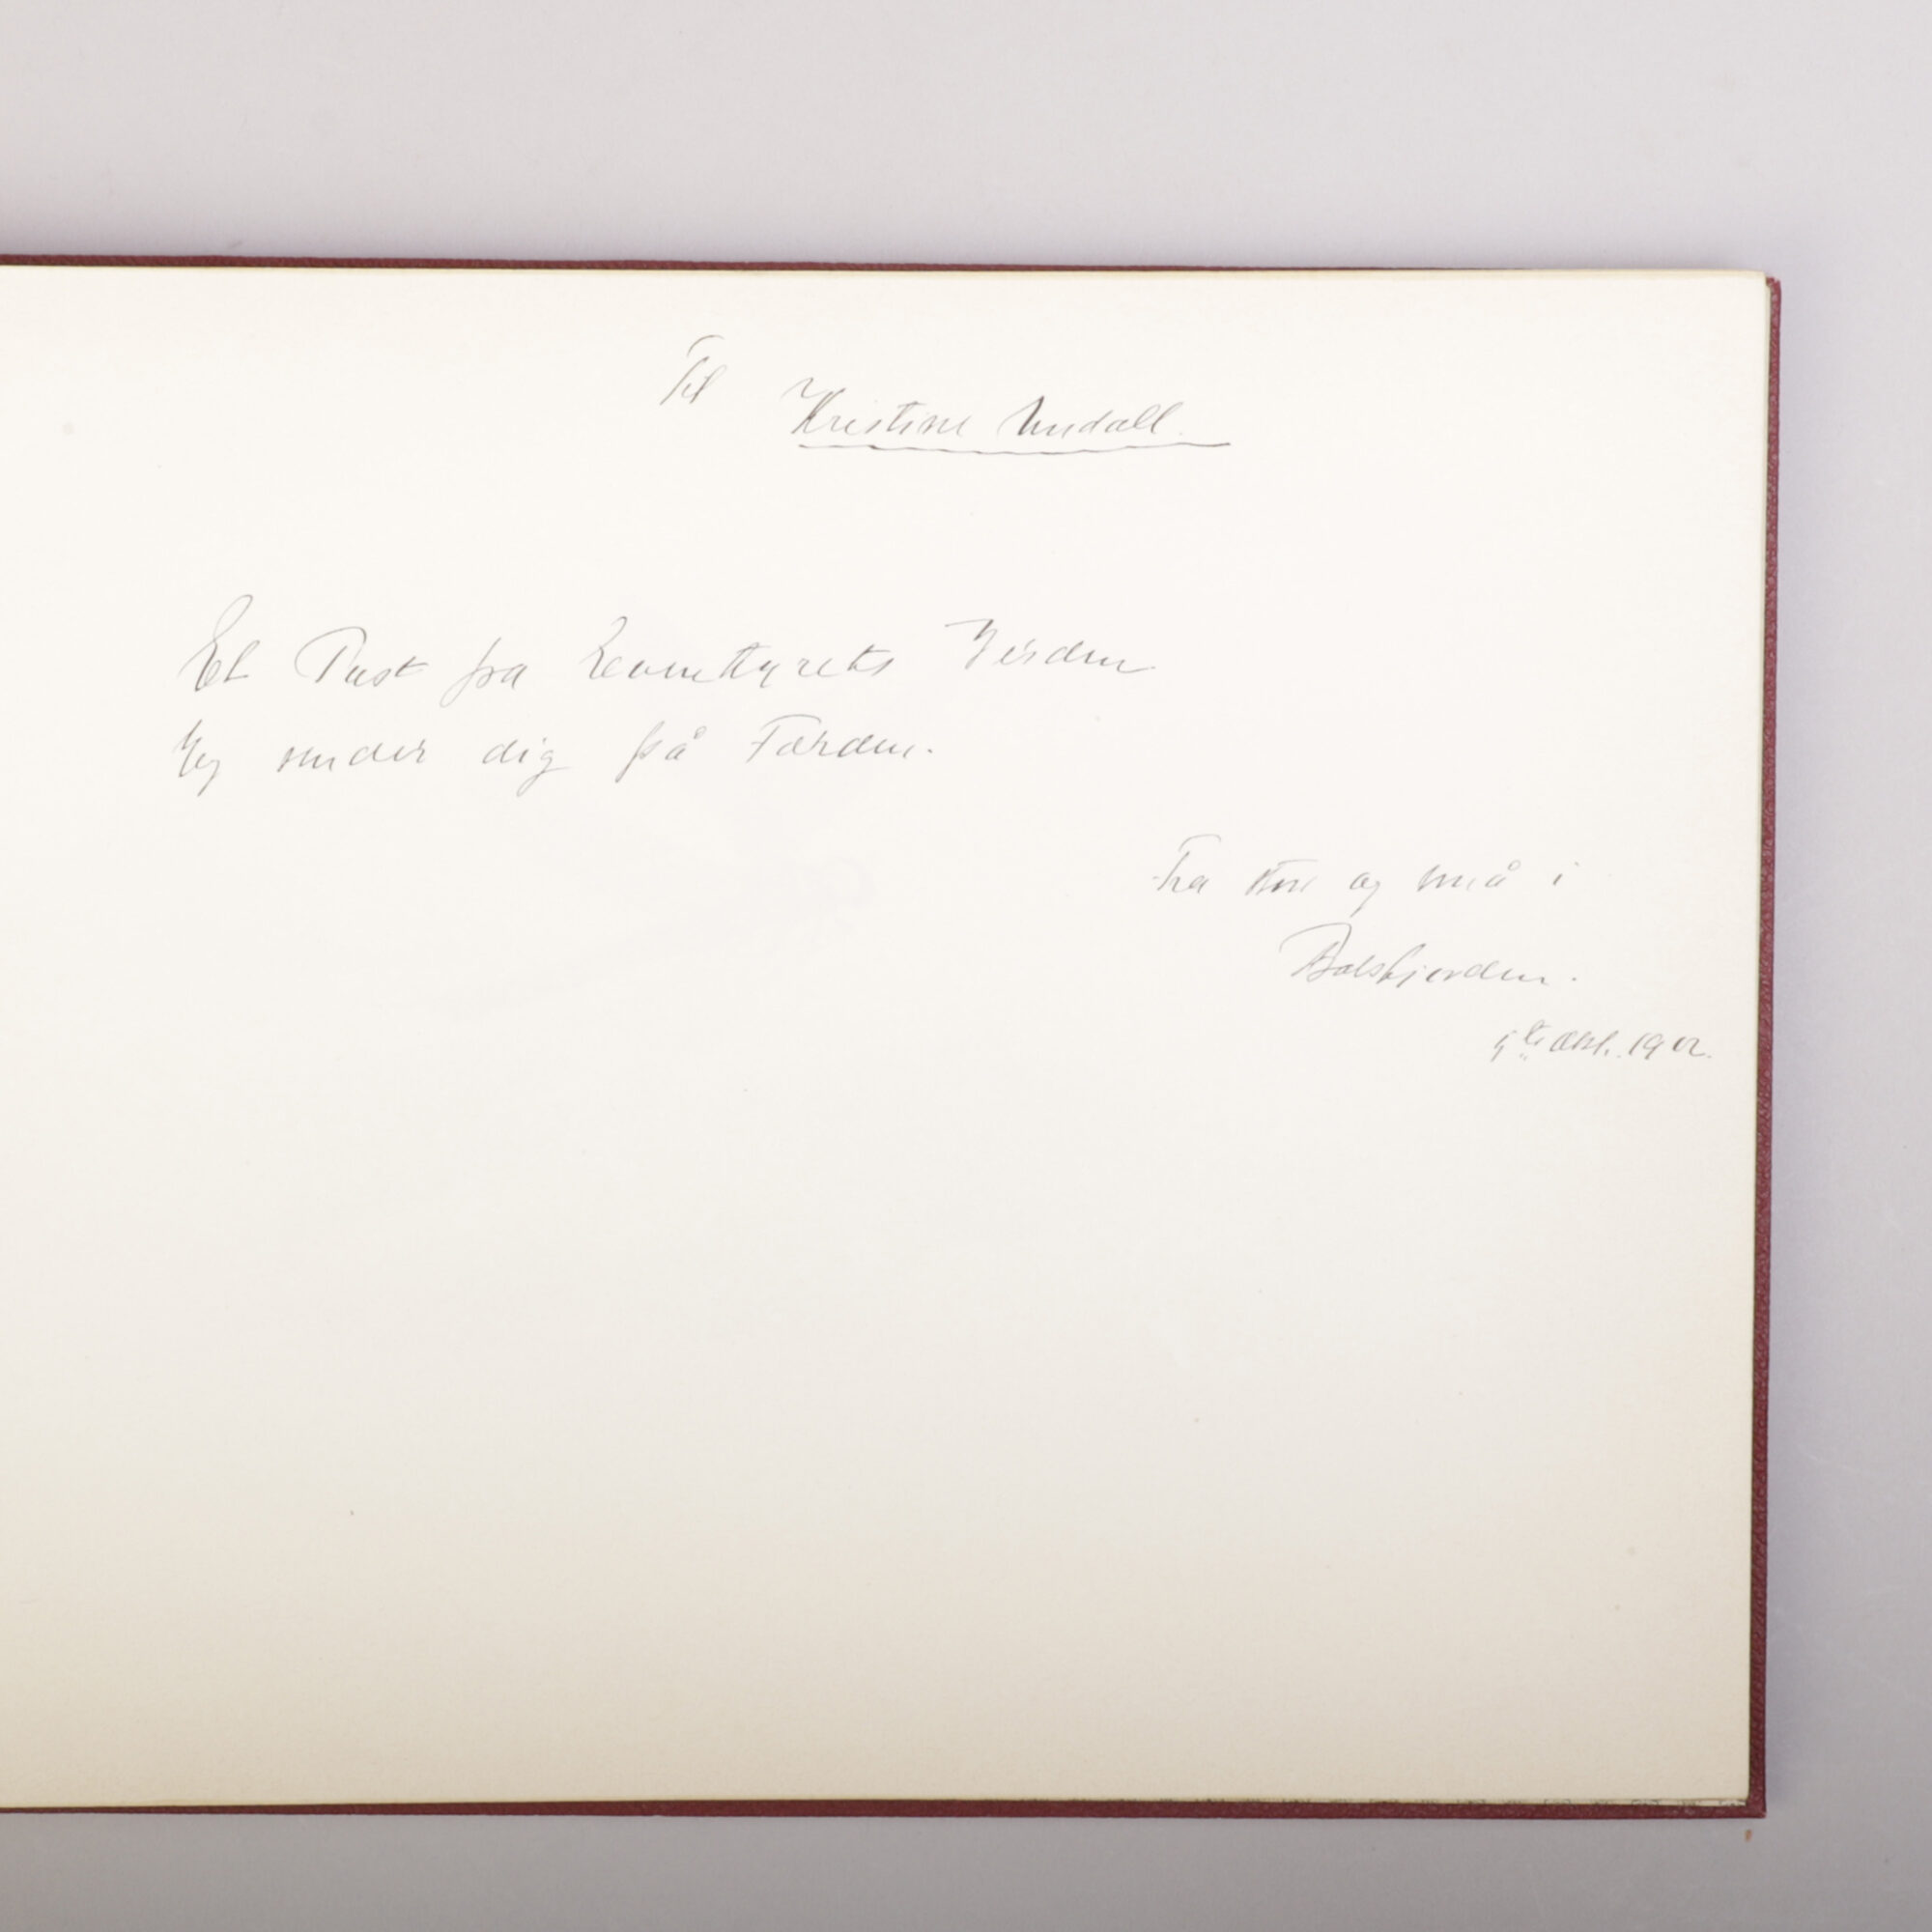 Til Kristine Undall.
Et Pust fra Eventyrets Verden
Jeg sender dig på Færden.
Fra store og små i
Balsfjorden.
5te Okt. 1902.